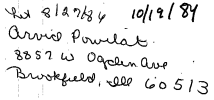 8/27/84 10/19/84
Arvid Powilat
8852 W Ogden Ave
Brookfield, Ill 60513